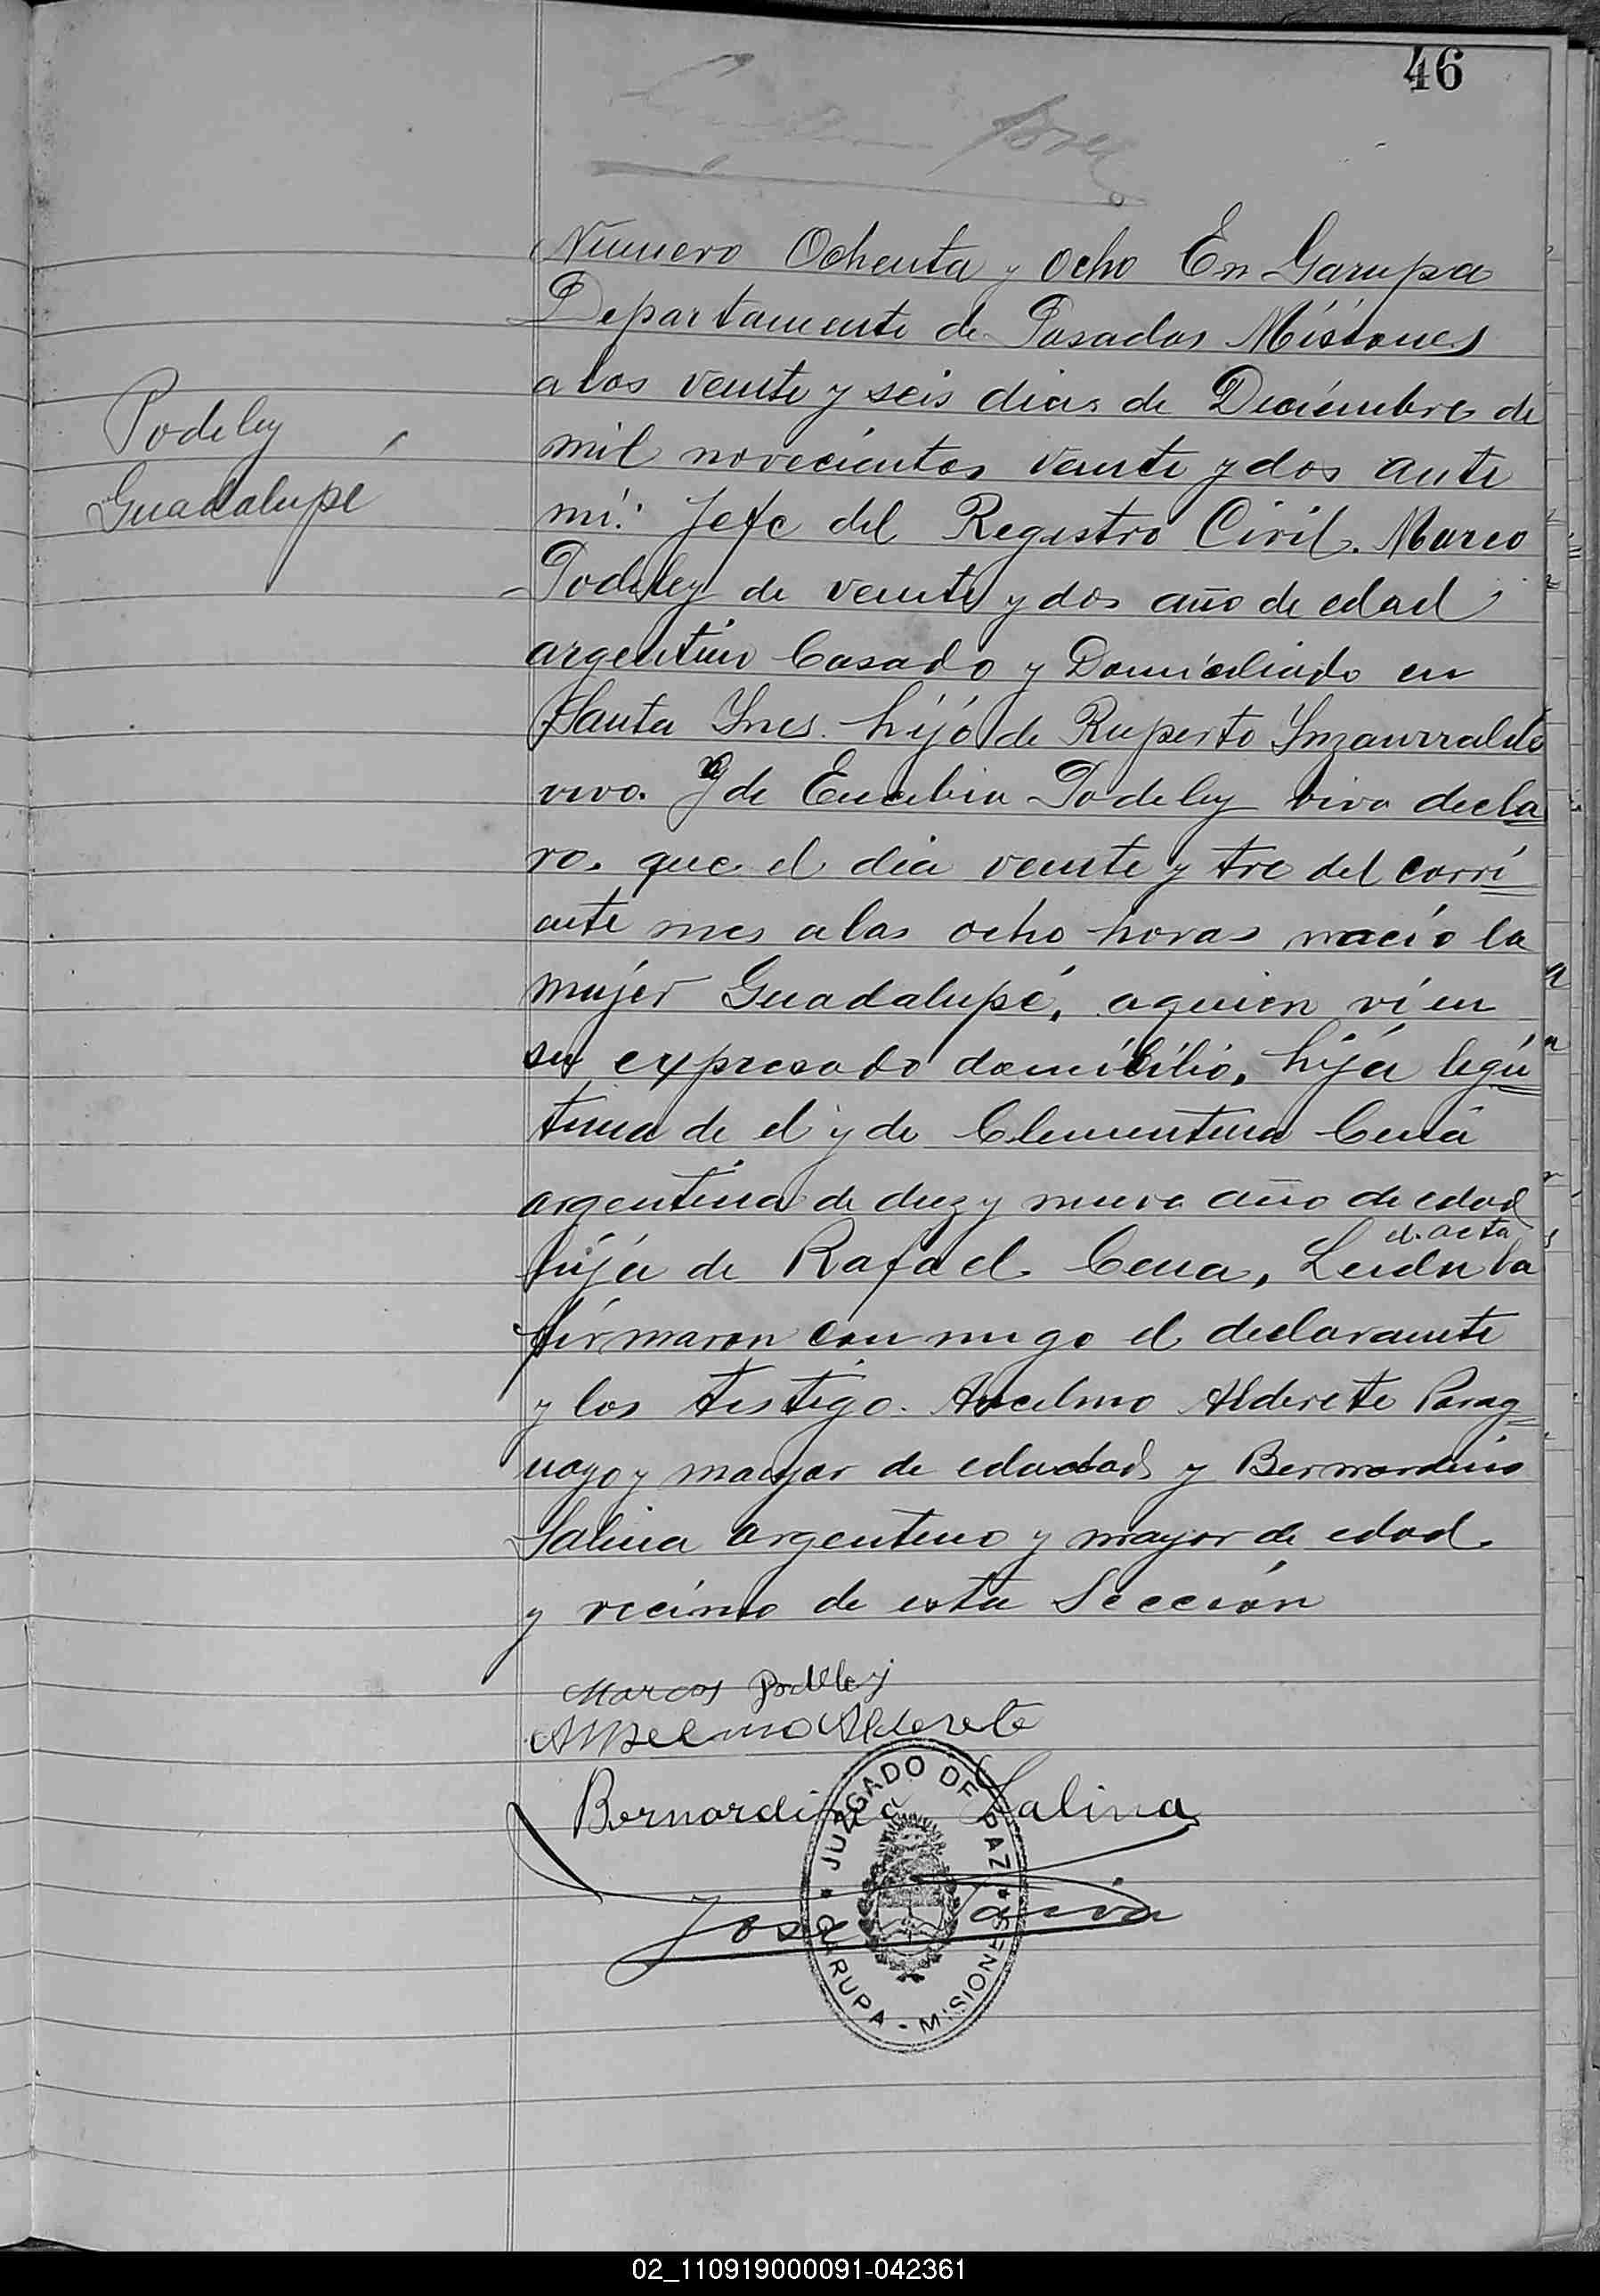 46
Numero Ochenta y Ocho En Garupa
Departamente de Posadas Misiones
a los veinte y seis dias de Deciembre de
mil novecientos veinte y dos ante
mi: Jefe del Registro Civil. Marco
Podeley
Guadalupé
Podeley de veinte y dos año de edad
argentino Casado y Domiciliado en
Santa Ynes. hijo de Ruperto Ynzaurralde
vivo. y de Eucebia Podeley viva decla
ro. que el dia veinte y tre del corri
ente mes a las ocho horas nacio la
mujer Guadalupé, aquien vi en
su expresado domicilio, hija legi
tima de el y de Clementina Cena
argentina de diez y nueve año de edad
hija de Rafael Cena, Leida la
el acta
firmaron con migo el declarante
y los testigo. Ancelmo Alderete Parag
uayo y mayor de edad y Bernardino
Salina argentino y mayor de edad.
y vecino de esta Sección
Marcos Podeley
Anselmo Alderete
Bernardino Salina
José
JUZGADO DE PAZ
GARUPA - MISIONES
02_110919000091-042361